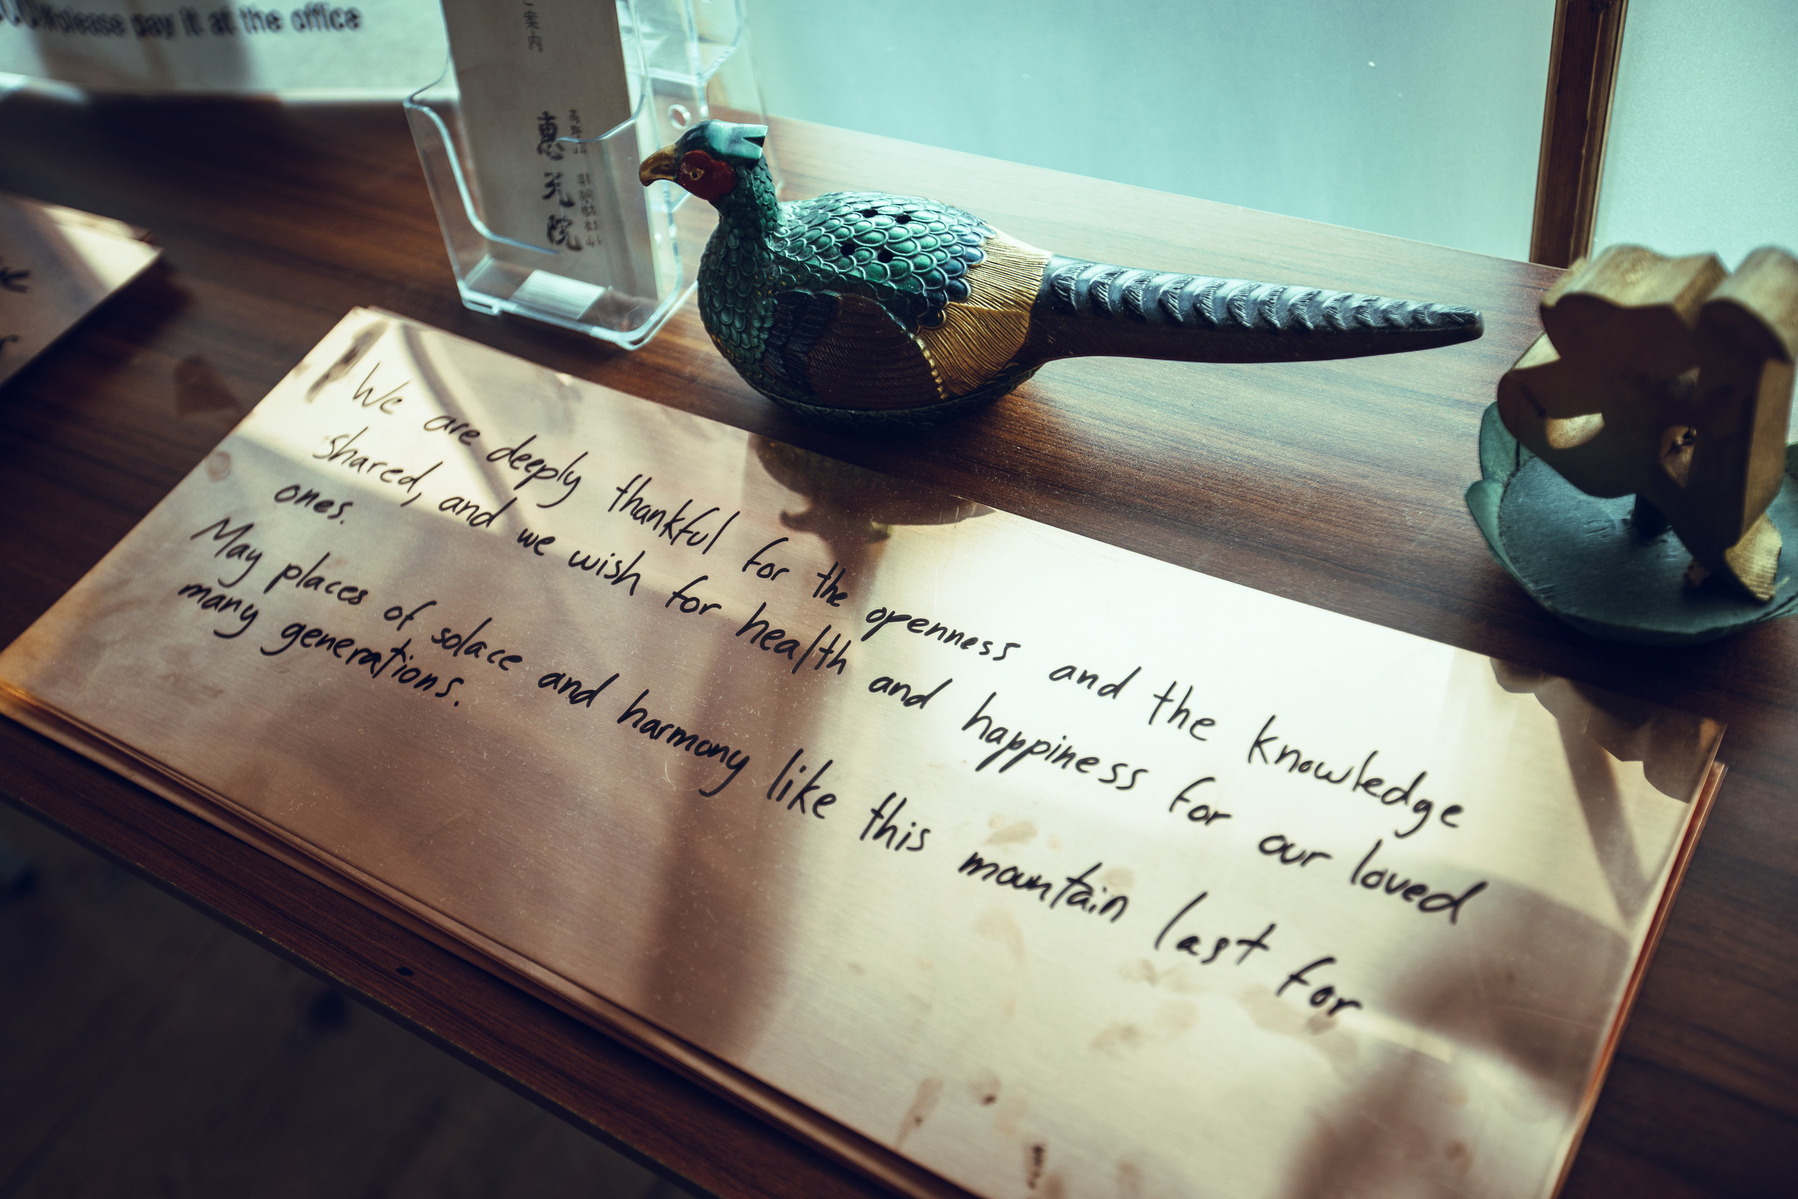 please pay it at the office
ご案内
高野山
恵光院
We are deeply thankful for the openness and the knowledge
shared, and we wish for health and happiness for our loved
ones.
May places of solace and harmony like this mountain last for
many generations.